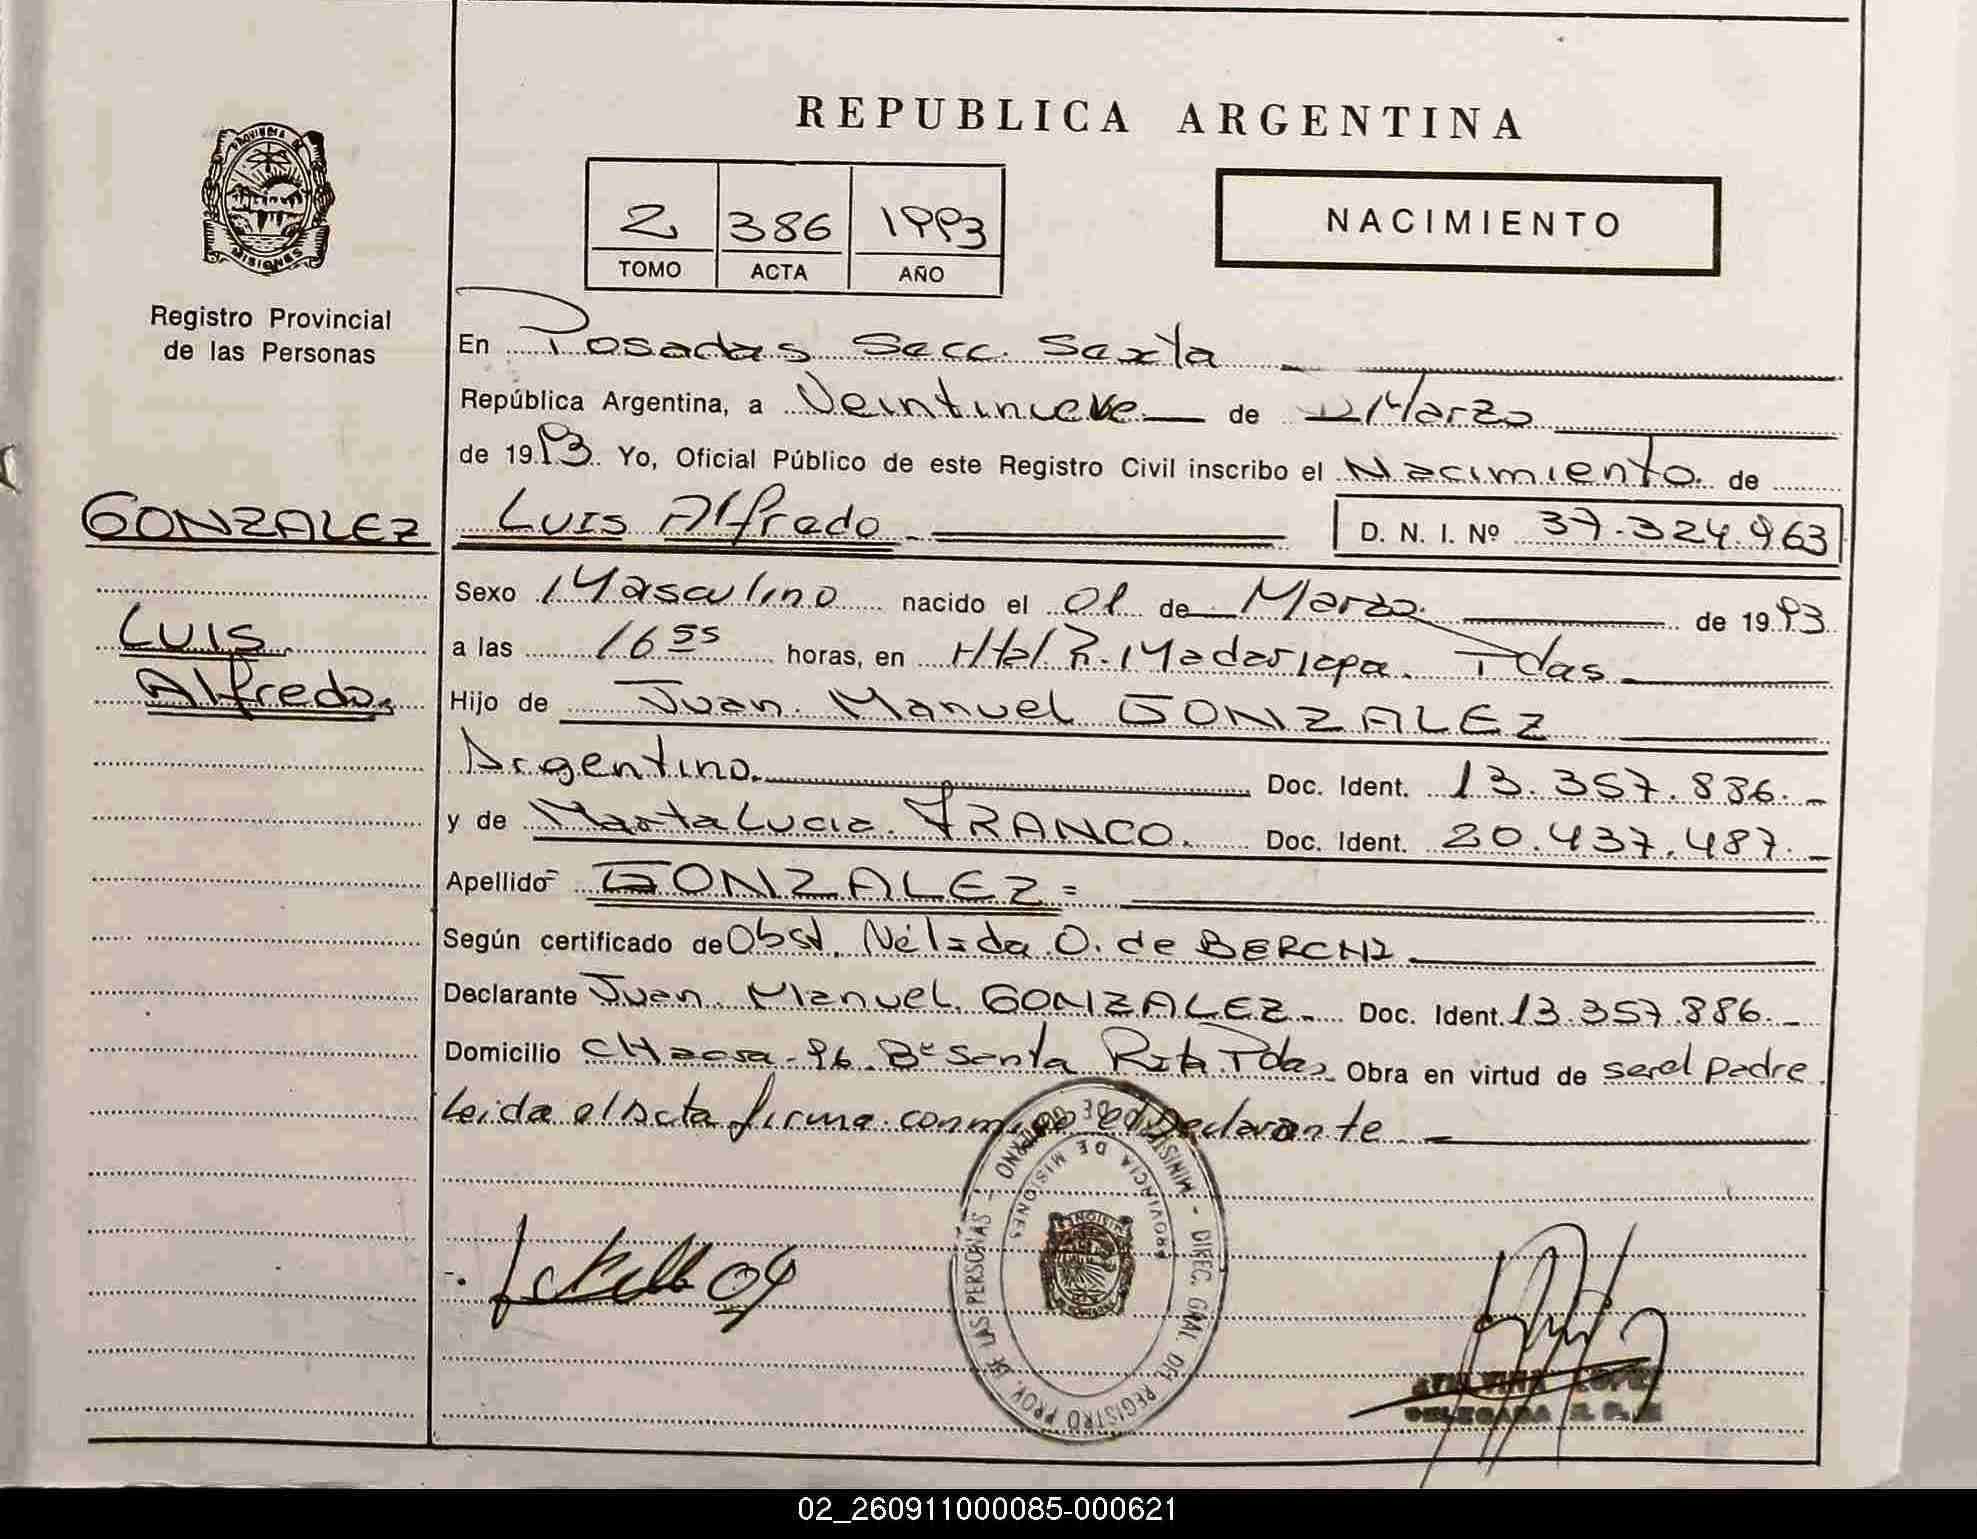 REPUBLICA ARGENTINA
PROVINCIA DE
MISIONES
Registro Provincial
de las Personas
2 386 1993
TOMO ACTA AÑO
NACIMIENTO
En Posadas Secc. Sexta
República Argentina, a Veintinueve de Marzo
de 1993. Yo, Oficial Público de este Registro Civil inscribo el Nacimiento de
GONZALEZ
Luis Alfredo
D. N. I. Nº 37.324.963
Luis
Alfredo
Sexo Masculino nacido el 01 de Marzo de 1993
a las 16 55 horas, en Htal R. Madariaga. Pdas
Hijo de Juan Manuel GONZALEZ
Argentino. Doc. Ident. 13.357.886.-
y de Marta Lucia FRANCO. Doc. Ident. 20.437.487.-
Apellido GONZALEZ=
Según certificado de Obst. Nélida O. de BERCHI
Declarante Juan Manuel GONZALEZ- Doc. Ident. 13.357.886.-
Domicilio CHacra-96. Bº Santa Rita Pdas Obra en virtud de ser el padre
Leida el Acta firma conmigo el Declarante
MINISTERIO DE GOBIERNO - DIREC. GRAL. DEL REGISTRO PROV. DE LAS PERSONAS
PROVINCIA DE MISIONES
LOPEZ
DELEGADA R. P. P.
02_260911000085-000621